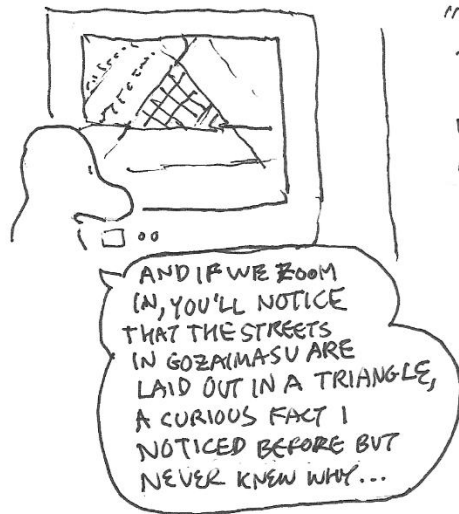 AND IF WE ZOOM
IN, YOU'LL NOTICE
THAT THE STREETS
IN GOZAIMASU ARE
LAID OUT IN A TRIANGLE,
A CURIOUS FACT I
NOTICED BEFORE BUT
NEVER KNEW WHY...